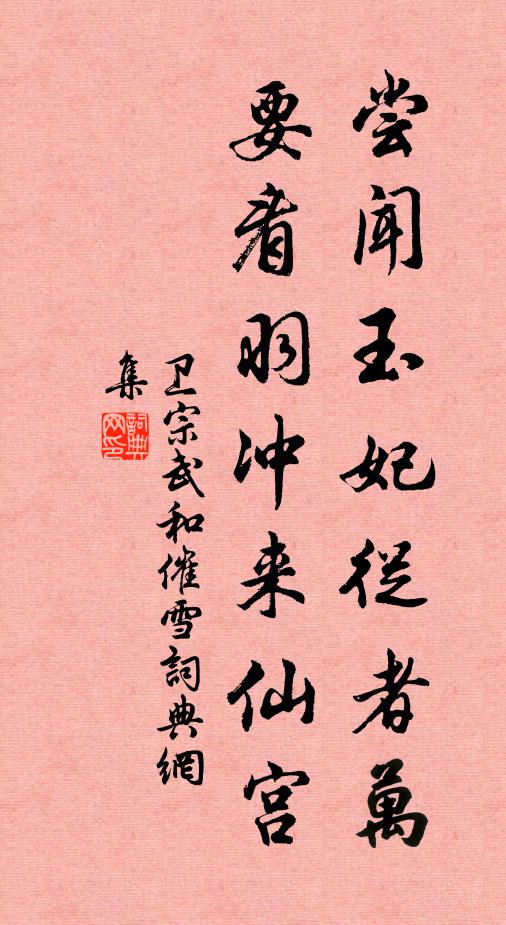 尝闻玉妃从者萬
要看羽冲来仙宫
卫宗武和催雪詞典網
集
詞典
网印